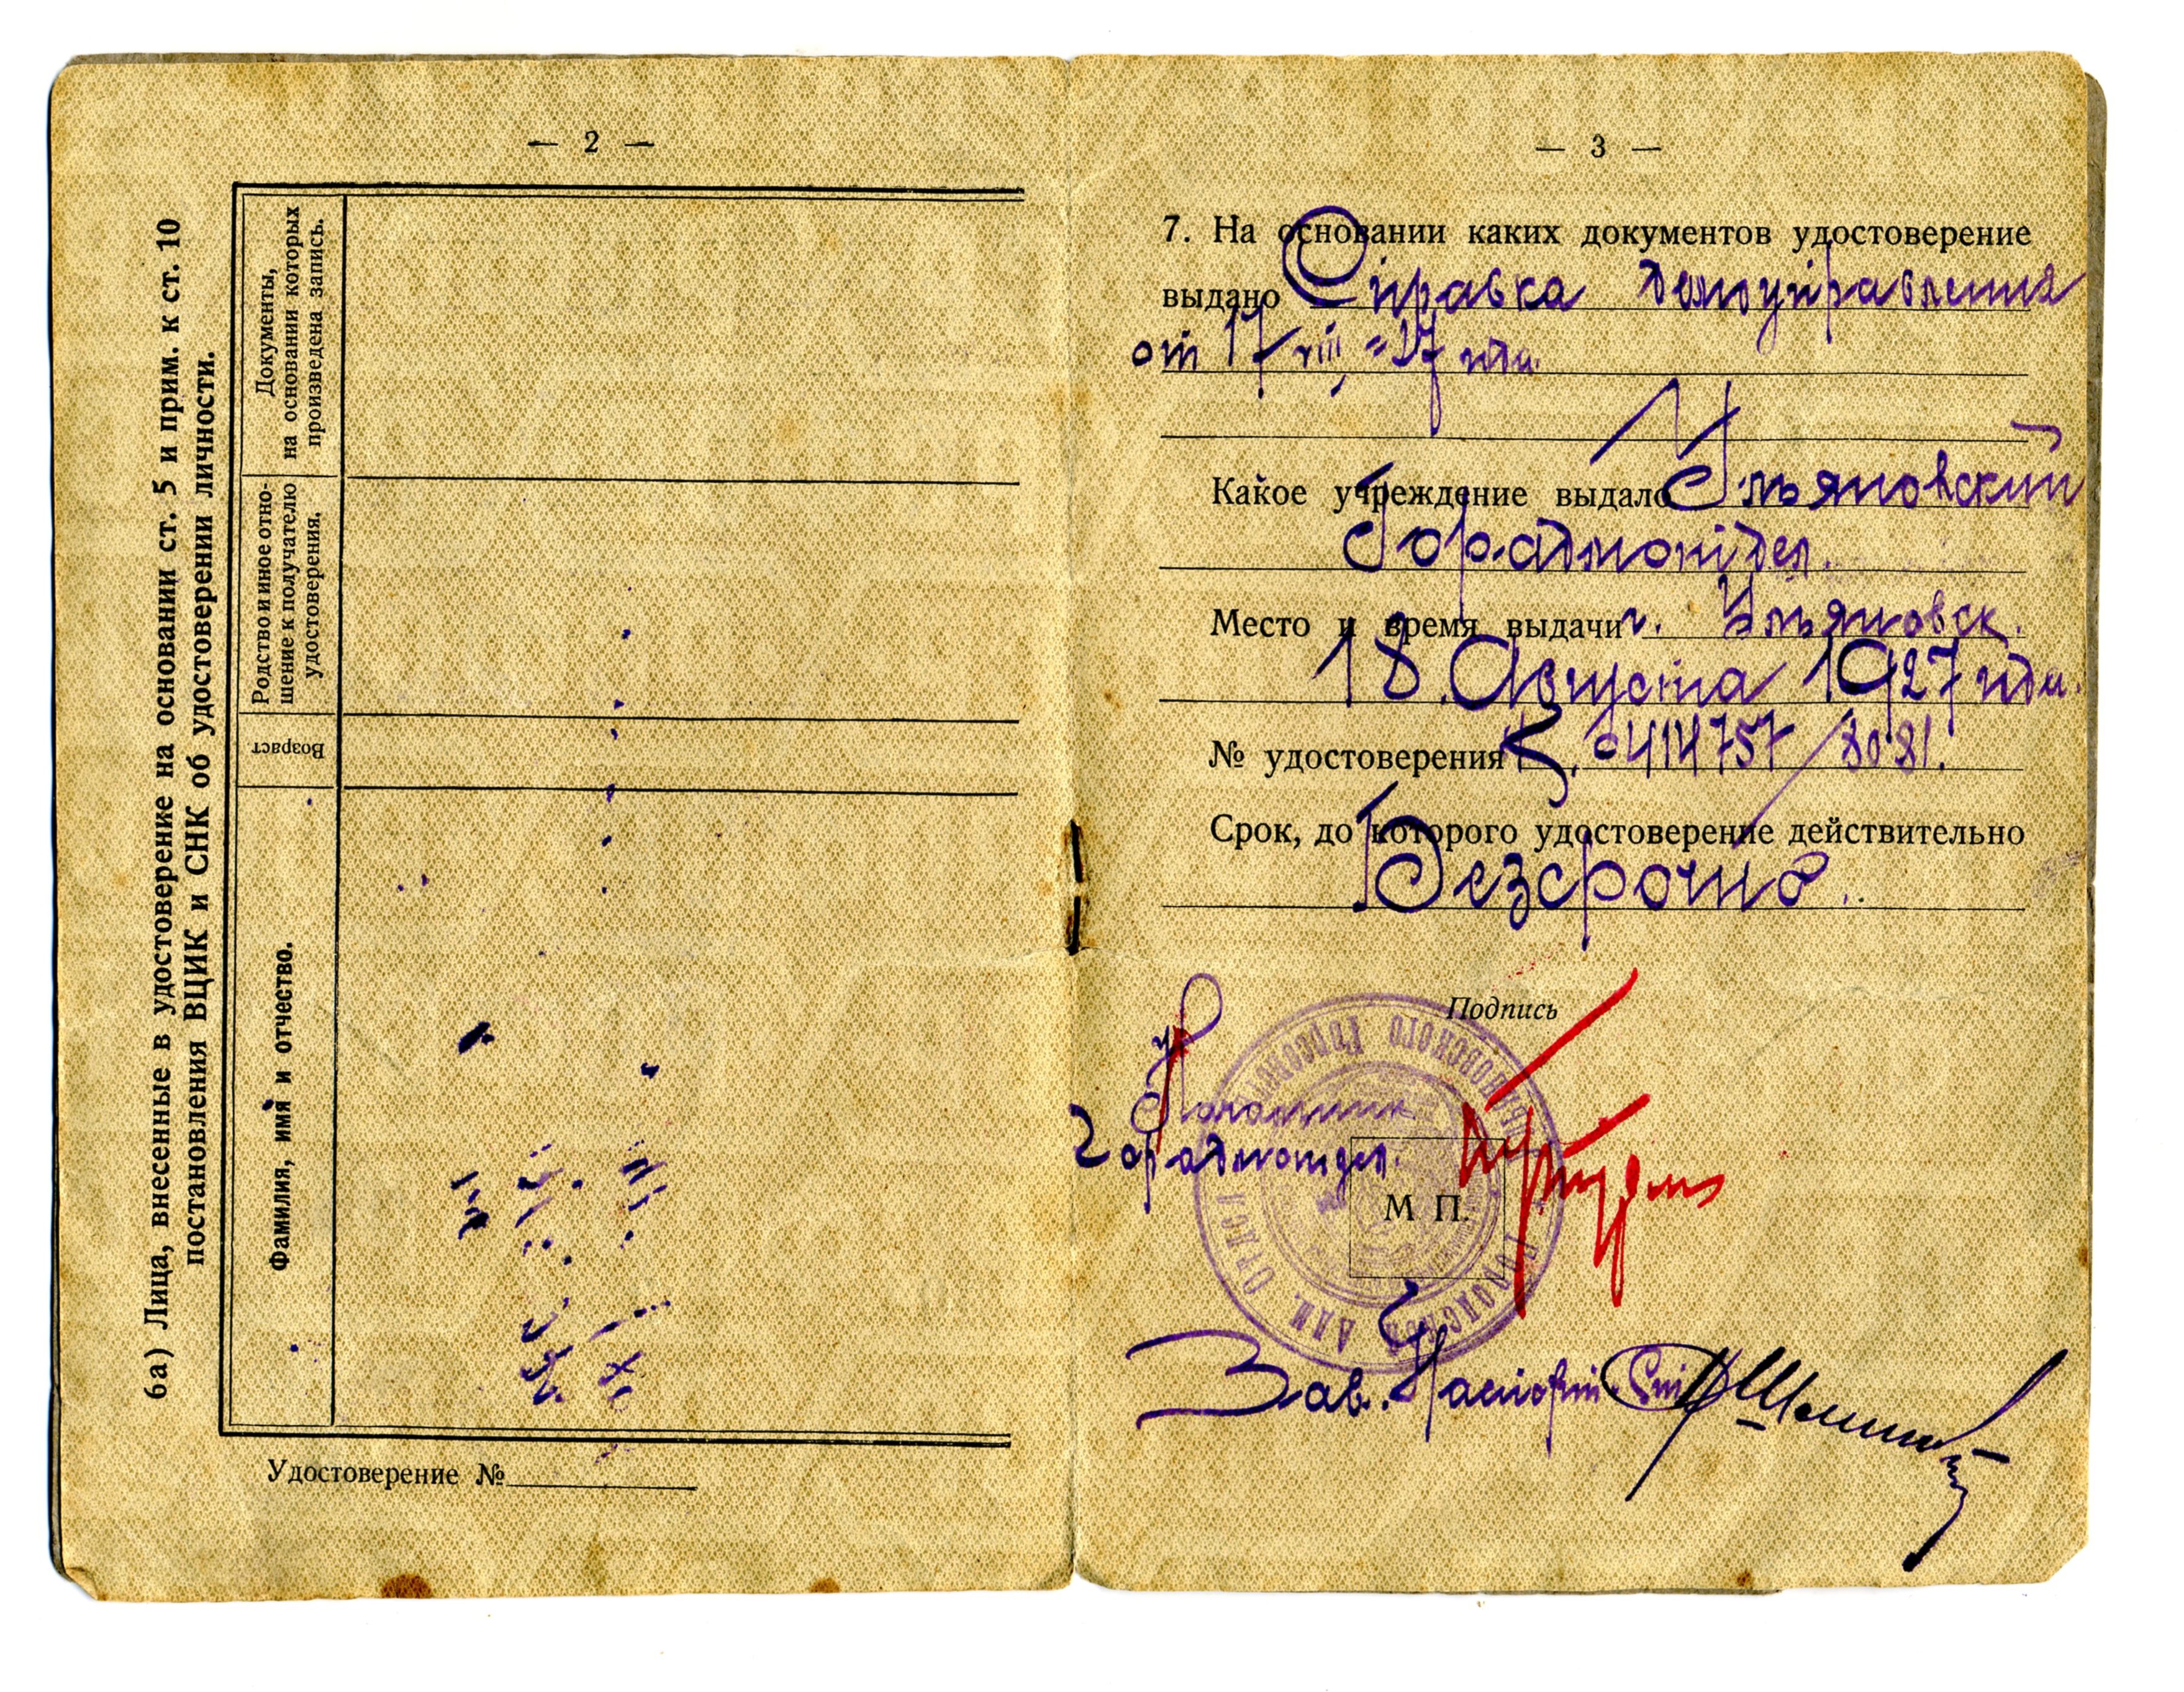 — 2 —
6а) Лица, внесенные в удостоверение на основании ст. 5 и прим. к ст. 10
постановления ВЦИК и СНК об удостоверении личности.
Документы,
на основании которых
произведена запись.
Родство и иное отно-
шение к получателю
удостоверения.
Возраст
Фамилия, имя и отчество.
Удостоверение №
— 3 —
7. На основании каких документов удостоверение
выдано Справка домоуправления
от 17/VIII-27 года.
Какое учреждение выдало Ульяновский
Гор.адмотдел.
Место и время выдачи г. Ульяновск.
18. Августа 1927 года.
№ удостоверения 0414757/8081.
Срок, до которого удостоверение действительно
Безсрочно.
Подпись
Начальник
Горадмотдел.
М П.
Ульяновского Горсовета
Городской Адм. Отдел
Зав. Паспортн. Ст.